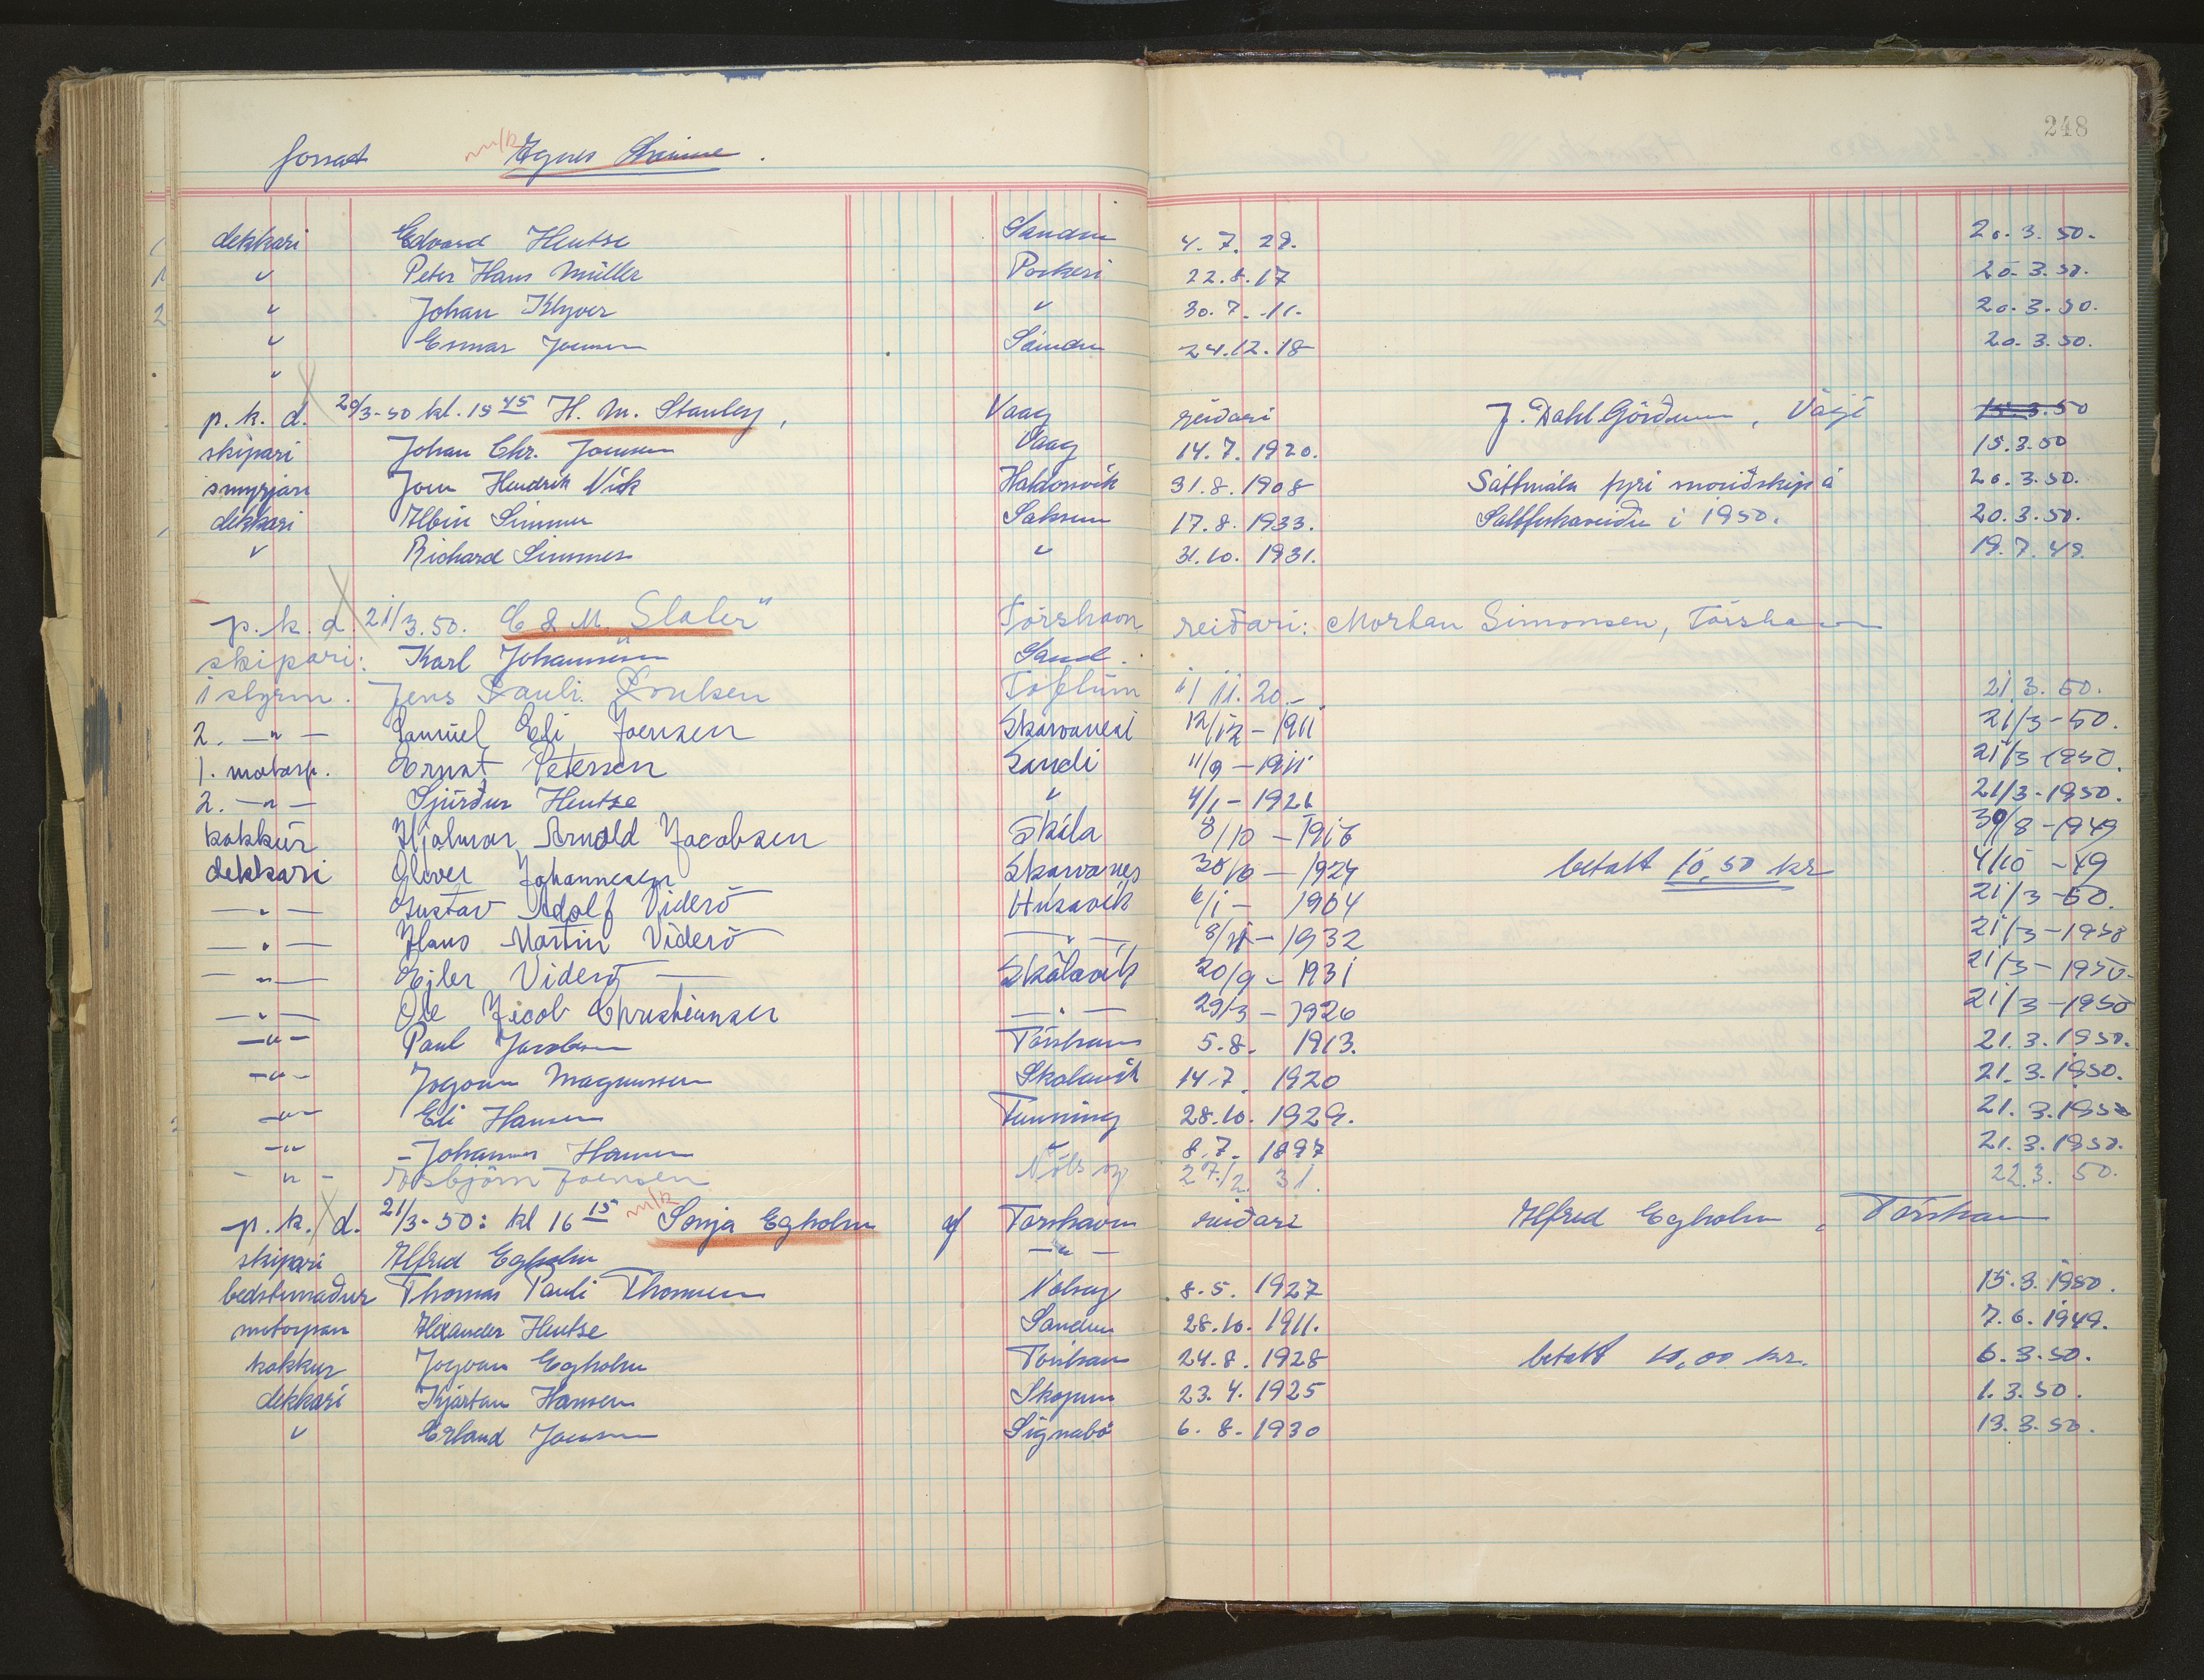 248
forsat m/k Agnes
dekkari Edvard Hentze Sandur 4. 7. 28. 20. 3. 50.
" Peter Hans Müller Porkeri 22. 8. 17 20. 3. 50.
" Johan Klyver " 30. 7. 11. 20. 3. 50.
" Joensen Sandur 24. 12. 18 20. 3. 50.
"
p. k. d. 20/3-50 kl. 15 45 H. M. Stanley, Vaag reiðari J. Dahl Górðum, Vági 15.3.50
skipari Johan Chr. Joensen Vaag 14. 7. 1920. 15. 3. 50
smyrjari Joen Hendrik Vick Haldorsvik 31. 8. 1908 Sáttmála fyri motorskip á 20. 3. 50.
dekkari Albin Simmer Saksun 17. 8. 1933. Saltfiskaveiðu i 1950. 20. 3. 50.
" Richard Simmer " 31. 10. 1931. 19. 7. 49.
p. k. d. 21/3. 50. E & M. "Slater" Tórshavn reiðari: Mortan Simonsen, Tórshavn
skipari: Karl Johannesen Sand.
1 styrm. Jens Pauli Poulsen Toftum 11. 20. 21 3. 50.
2. — " — Samuel Eli Joensen Skarvanesi 12/12 – 1911 21/3 – 50.
1. motorp. Ernst Petersen Sandi 11/9 – 1911 21/3 1950.
2. — " — Sjúrður Hentze " 4/1 – 1926 21/3 - 1950.
kokkur Hjalmar Arnold Jacobsen Skála 8/10 – 1916 30/8 – 1949
dekkari Oliver Johannesen Skarvanes 30/10 — 1924 betalt 10,50 kr 4/10 – 49
— " — Gustav Adolf Viderö Húsavík 6/1 – 1904 21/3 – 50.
— " — Hans Martin Viderö — " — 8/11 – 1932 21/3 – 1950
— " — Ejler Viderö — Skálavík 20/9 – 1931 21/3 – 1950.
— " — Ole Jacob Christiansen — " — 29/3 – 1926 21/3 – 1950
— " — Paul Jacobsen Tórshavn 5. 8. 1913. 21. 3. 1950.
— " — Jogvan Magnussen Skalavik 14. 7. 1920 21. 3. 1950.
— " — Eli Hansen Funning 28. 10. 1929. 21. 3. 1950
— " — Johannes Hansen " 8. 7. 1897 21. 3. 1950.
— " — Asbjörn Joensen Nólsoy 27/2. 31. 22. 3. 50.
p. k. d. 21/3 - 50: kl 16 15 m/k Sonja Egholm af Torshavn reiðari Alfred Egholm, Tórshavn
skipari Alfred Egholm — " —
bedstemaður Thomas Pauli Thomsen Nolsoy 8. 5. 1927 15. 3. 1950.
motorpass Alexander Hentze Sandur 28. 10. 1911. 7. 6. 1949.
kokkur Jogvan Egholm Tórshavn 24. 8. 1928 betalt 10,00 kr. 6. 3. 50.
dekkari Kjartan Hansen Skopun 23. 4. 1925 1. 3. 50.
" Erland Joensen Signabø 6. 8. 1930 13. 3. 50.